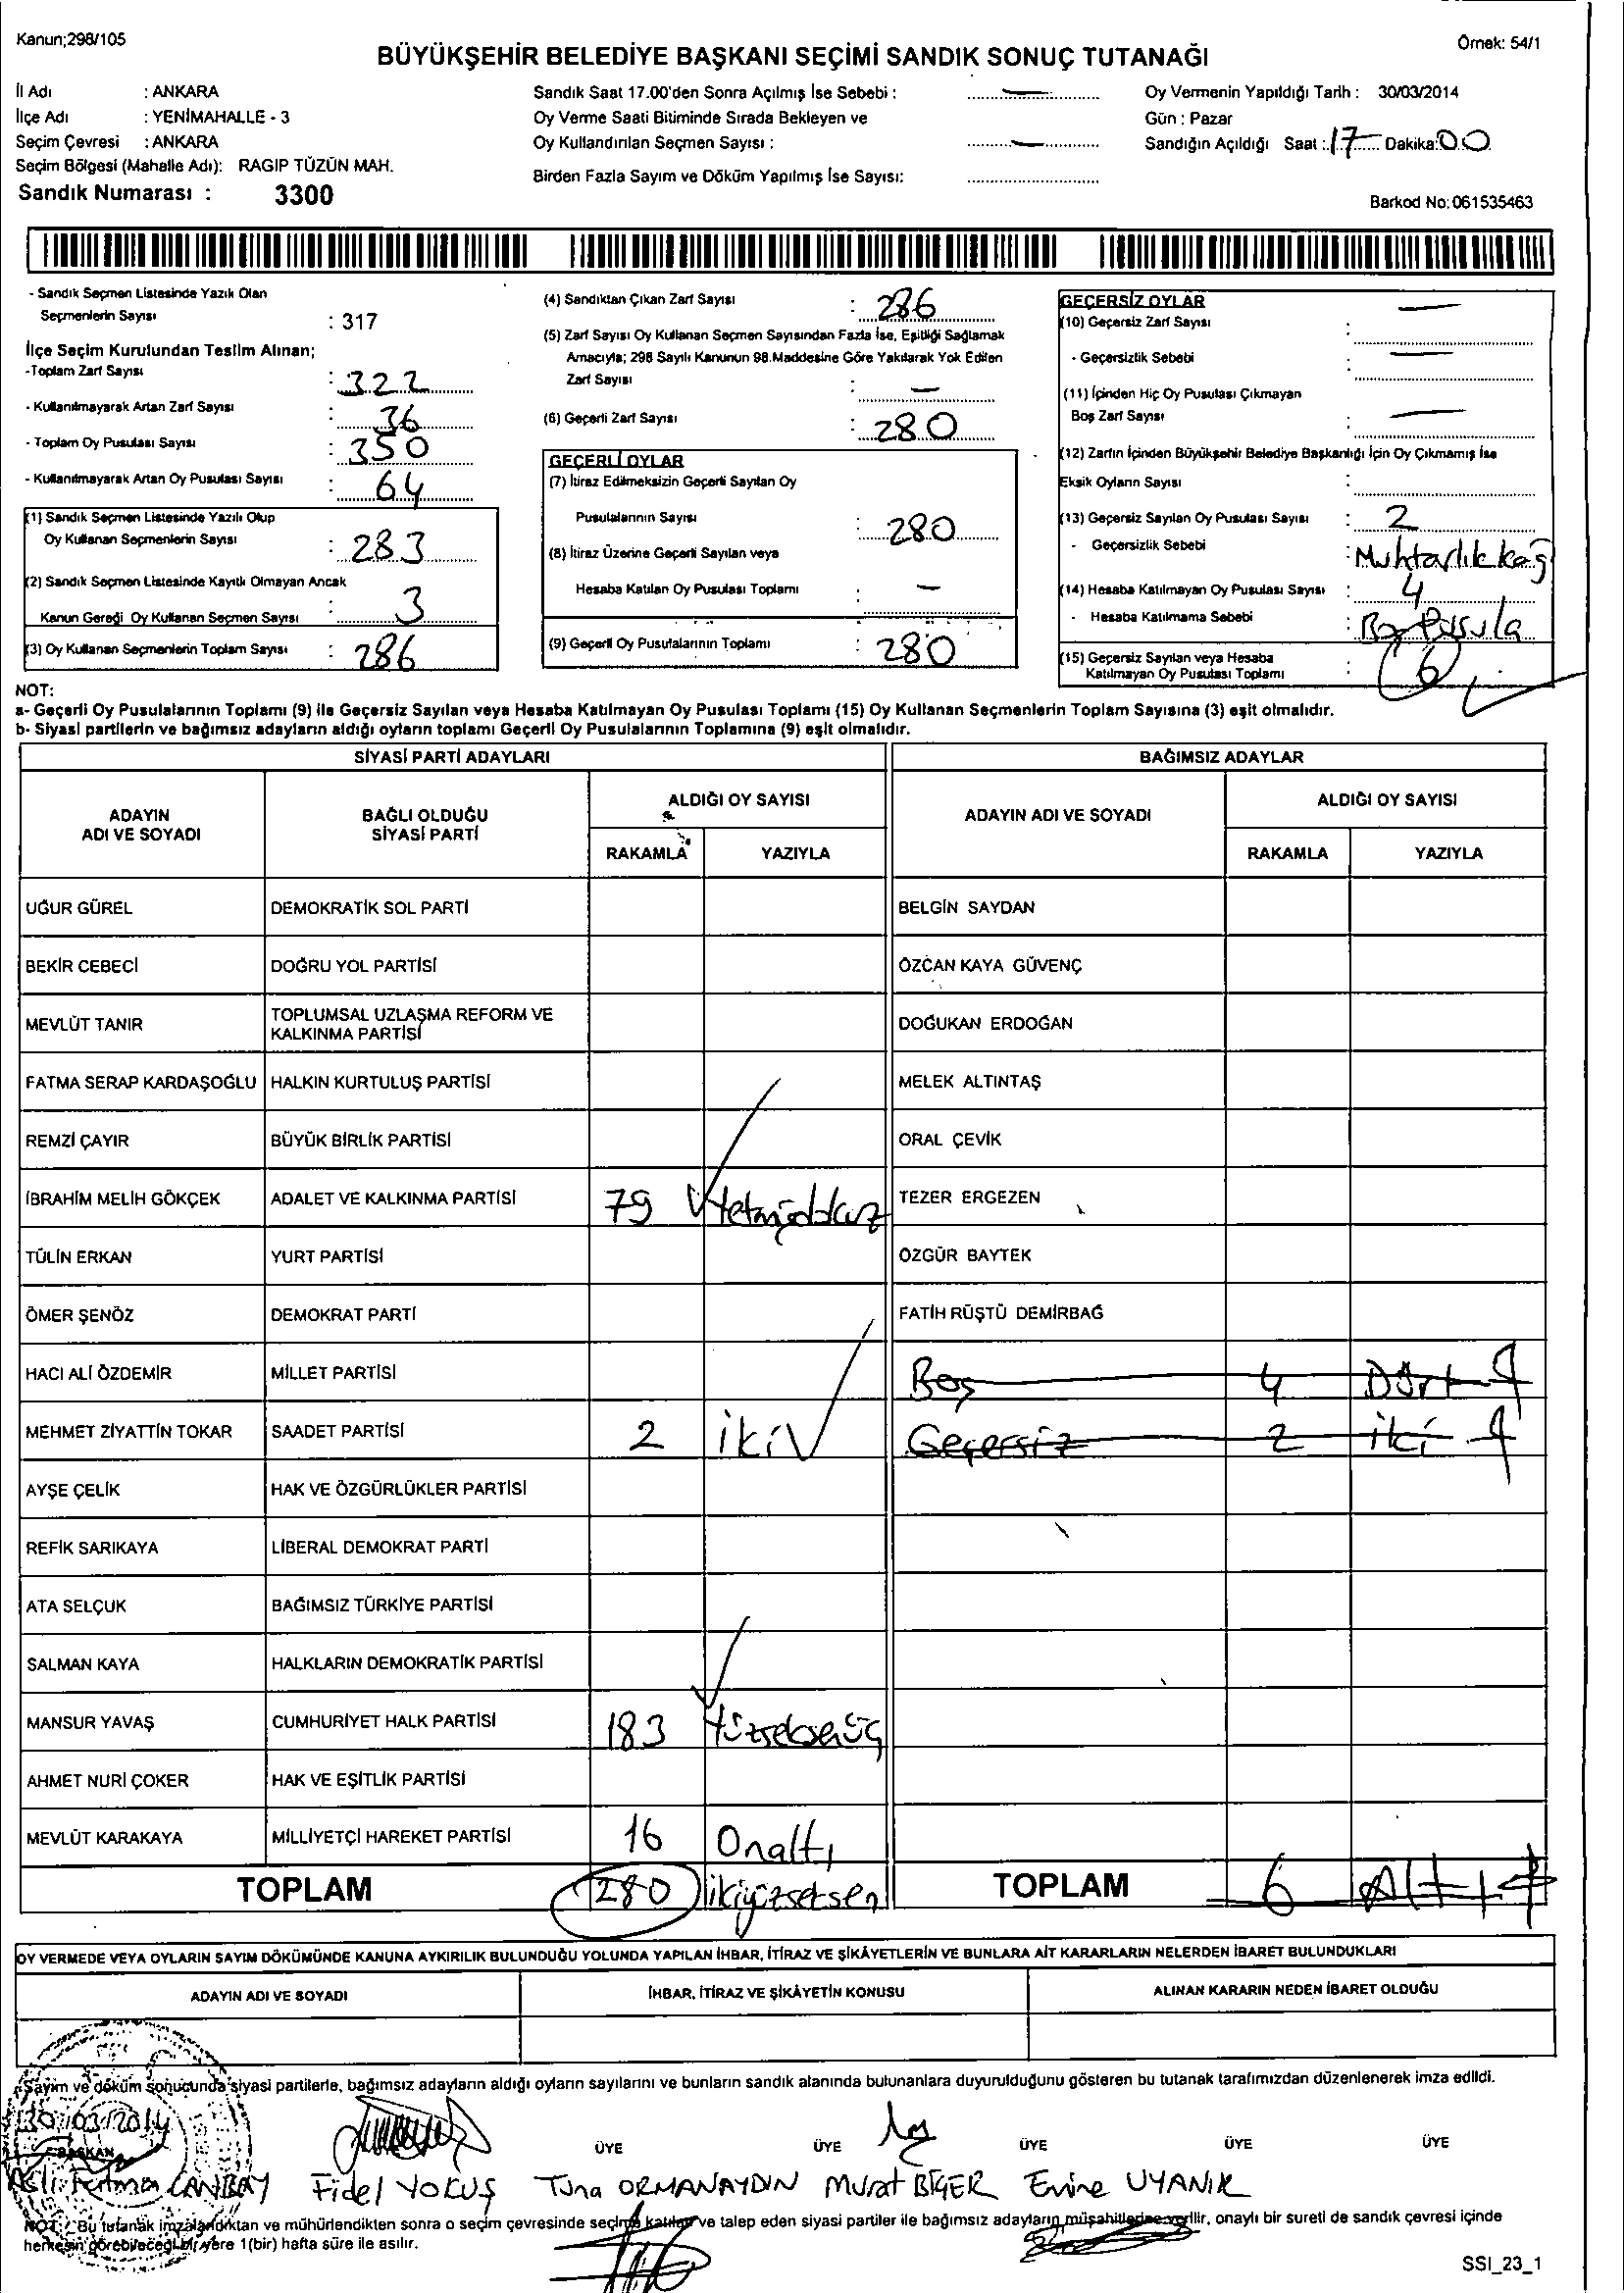 Kanun;298/105
Örnek: 54/1
BÜYÜKŞEHİR BELEDİYE BAŞKANI SEÇİMİ SANDIK SONUÇ TUTANAĞI
İl Adı : ANKARA
İlçe Adı : YENİMAHALLE - 3
Seçim Çevresi : ANKARA
Seçim Bölgesi (Mahalle Adı): RAGIP TÜZÜN MAH.
Sandık Numarası : 3300
Sandık Saat 17.00'den Sonra Açılmış İse Sebebi : —
Oy Verme Saati Bitiminde Sırada Bekleyen ve
Oy Kullandırılan Seçmen Sayısı : —
Birden Fazla Sayım ve Döküm Yapılmış İse Sayısı:
Oy Vermenin Yapıldığı Tarih : 30/03/2014
Gün : Pazar
Sandığın Açıldığı Saat : 17 Dakika: 00
Barkod No: 061535463
- Sandık Seçmen Listesinde Yazılı Olan
Seçmenlerin Sayısı : 317
İlçe Seçim Kurulundan Teslim Alınan;
-Toplam Zarf Sayısı : 322
- Kullanılmayarak Artan Zarf Sayısı : 36
- Toplam Oy Pusulası Sayısı : 350
- Kullanılmayarak Artan Oy Pusulası Sayısı : 64
(1) Sandık Seçmen Listesinde Yazılı Olup
Oy Kullanan Seçmenlerin Sayısı : 283
(2) Sandık Seçmen Listesinde Kayıtlı Olmayan Ancak
Kanun Gereği Oy Kullanan Seçmen Sayısı : 3
(3) Oy Kullanan Seçmenlerin Toplam Sayısı : 286
(4) Sandıktan Çıkan Zarf Sayısı : 286
(5) Zarf Sayısı Oy Kullanan Seçmen Sayısından Fazla İse, Eşitliği Sağlamak
Amacıyla; 298 Sayılı Kanunun 98.Maddesine Göre Yakılarak Yok Edilen
Zarf Sayısı : —
(6) Geçerli Zarf Sayısı : 280
GEÇERLİ OYLAR
(7) İtiraz Edilmeksizin Geçerli Sayılan Oy
Pusulalarının Sayısı : 280
(8) İtiraz Üzerine Geçerli Sayılan veya
Hesaba Katılan Oy Pusulası Toplamı : —
(9) Geçerli Oy Pusulalarının Toplamı : 280
GEÇERSİZ OYLAR
(10) Geçersiz Zarf Sayısı : —
- Geçersizlik Sebebi : —
(11) İçinden Hiç Oy Pusulası Çıkmayan
Boş Zarf Sayısı : —
(12) Zarfın İçinden Büyükşehir Belediye Başkanlığı İçin Oy Çıkmamış İse
Eksik Oyların Sayısı :
(13) Geçersiz Sayılan Oy Pusulası Sayısı : 2
- Geçersizlik Sebebi : Muhtarlık kağ
(14) Hesaba Katılmayan Oy Pusulası Sayısı : 4
- Hesaba Katılmama Sebebi : Boş Pusula
(15) Geçersiz Sayılan veya Hesaba
Katılmayan Oy Pusulası Toplamı : 6
NOT:
a- Geçerli Oy Pusulalarının Toplamı (9) ile Geçersiz Sayılan veya Hesaba Katılmayan Oy Pusulası Toplamı (15) Oy Kullanan Seçmenlerin Toplam Sayısına (3) eşit olmalıdır.
b- Siyasi partilerin ve bağımsız adayların aldığı oyların toplamı Geçerli Oy Pusulalarının Toplamına (9) eşit olmalıdır.
SİYASİ PARTİ ADAYLARI
BAĞIMSIZ ADAYLAR
ADAYIN
ADI VE SOYADI
BAĞLI OLDUĞU
SİYASİ PARTİ
ALDIĞI OY SAYISI
RAKAMLA YAZIYLA
ADAYIN ADI VE SOYADI
ALDIĞI OY SAYISI
RAKAMLA YAZIYLA
UĞUR GÜREL DEMOKRATİK SOL PARTİ BELGİN SAYDAN
BEKİR CEBECİ DOĞRU YOL PARTİSİ ÖZCAN KAYA GÜVENÇ
MEVLÜT TANIR TOPLUMSAL UZLAŞMA REFORM VE
KALKINMA PARTİSİ DOĞUKAN ERDOĞAN
FATMA SERAP KARDAŞOĞLU HALKIN KURTULUŞ PARTİSİ MELEK ALTINTAŞ
REMZİ ÇAYIR BÜYÜK BİRLİK PARTİSİ ORAL ÇEVİK
İBRAHİM MELİH GÖKÇEK ADALET VE KALKINMA PARTİSİ 79 Yetmişdokuz TEZER ERGEZEN
TÜLİN ERKAN YURT PARTİSİ ÖZGÜR BAYTEK
ÖMER ŞENÖZ DEMOKRAT PARTİ FATİH RÜŞTÜ DEMİRBAĞ
HACI ALİ ÖZDEMİR MİLLET PARTİSİ Boş 4 Dört
MEHMET ZİYATTİN TOKAR SAADET PARTİSİ 2 iki Geçersiz 2 iki
AYŞE ÇELİK HAK VE ÖZGÜRLÜKLER PARTİSİ
REFİK SARIKAYA LİBERAL DEMOKRAT PARTİ
ATA SELÇUK BAĞIMSIZ TÜRKİYE PARTİSİ
SALMAN KAYA HALKLARIN DEMOKRATİK PARTİSİ
MANSUR YAVAŞ CUMHURİYET HALK PARTİSİ 183 Yüzseksenüç
AHMET NURİ ÇOKER HAK VE EŞİTLİK PARTİSİ
MEVLÜT KARAKAYA MİLLİYETÇİ HAREKET PARTİSİ 16 Onaltı
TOPLAM 280 ikiyüzseksen TOPLAM 6 Altı
OY VERMEDE VEYA OYLARIN SAYIM DÖKÜMÜNDE KANUNA AYKIRILIK BULUNDUĞU YOLUNDA YAPILAN İHBAR, İTİRAZ VE ŞİKÂYETLERİN VE BUNLARA AİT KARARLARIN NELERDEN İBARET BULUNDUKLARI
ADAYIN ADI VE SOYADI İHBAR, İTİRAZ VE ŞİKÂYETİN KONUSU ALINAN KARARIN NEDEN İBARET OLDUĞU
Sayım ve döküm sonucunda siyasi partilerle, bağımsız adayların aldığı oyların sayılarını ve bunların sandık alanında bulunanlara duyurulduğunu gösteren bu tutanak tarafımızdan düzenlenerek imza edildi.
30/03/2014
BAŞKAN ÜYE ÜYE ÜYE ÜYE ÜYE
Aslı Fatma CANBAY Fidel YOKUŞ Tuna ORMANAYDIN Murat BİÇER Emine UYANIK
NOT : Bu tutanak imzalandıktan ve mühürlendikten sonra o seçim çevresinde seçime katılan ve talep eden siyasi partiler ile bağımsız adayların müşahitlerine verilir, onaylı bir sureti de sandık çevresi içinde
herkesin görebileceği bir yere 1(bir) hafta süre ile asılır.
SSI_23_1